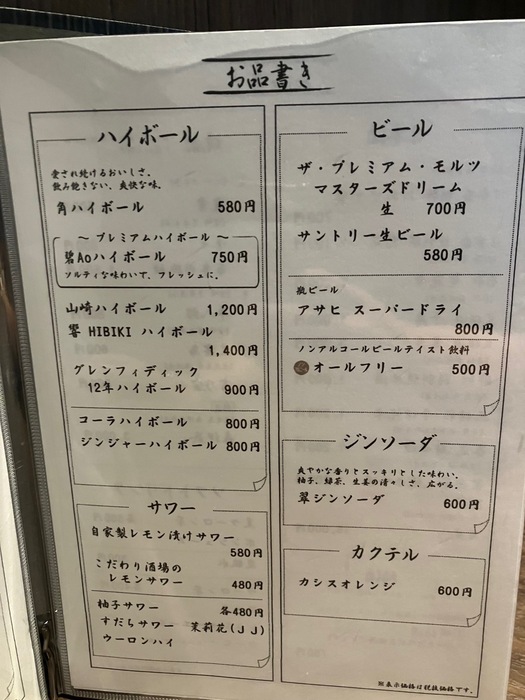 お品書き
ハイボール
愛され続けるおいしさ。
飲み飽きない、爽快な味。
角ハイボール 580円
～ プレミアムハイボール ～
碧Aoハイボール 750円
ソルティな味わいで、フレッシュに。
山崎ハイボール 1,200円
響 HIBIKI ハイボール
1,400円
グレンフィディック
12年ハイボール 900円
コーラハイボール 800円
ジンジャーハイボール 800円
サワー
自家製レモン漬けサワー
580円
こだわり酒場の
レモンサワー 480円
柚子サワー 各480円
すだちサワー 茉莉花(JJ)
ウーロンハイ
ビール
ザ・プレミアム・モルツ
マスターズドリーム
生 700円
サントリー生ビール
580円
瓶ビール
アサヒ スーパードライ
800円
ノンアルコールビールテイスト飲料
オールフリー 500円
ジンソーダ
爽やかな香りとスッキリとした味わい。
柚子、緑茶、生姜の清々しさ、広がる。
翠ジンソーダ 600円
カクテル
カシスオレンジ 600円
※表示価格は税抜価格です。